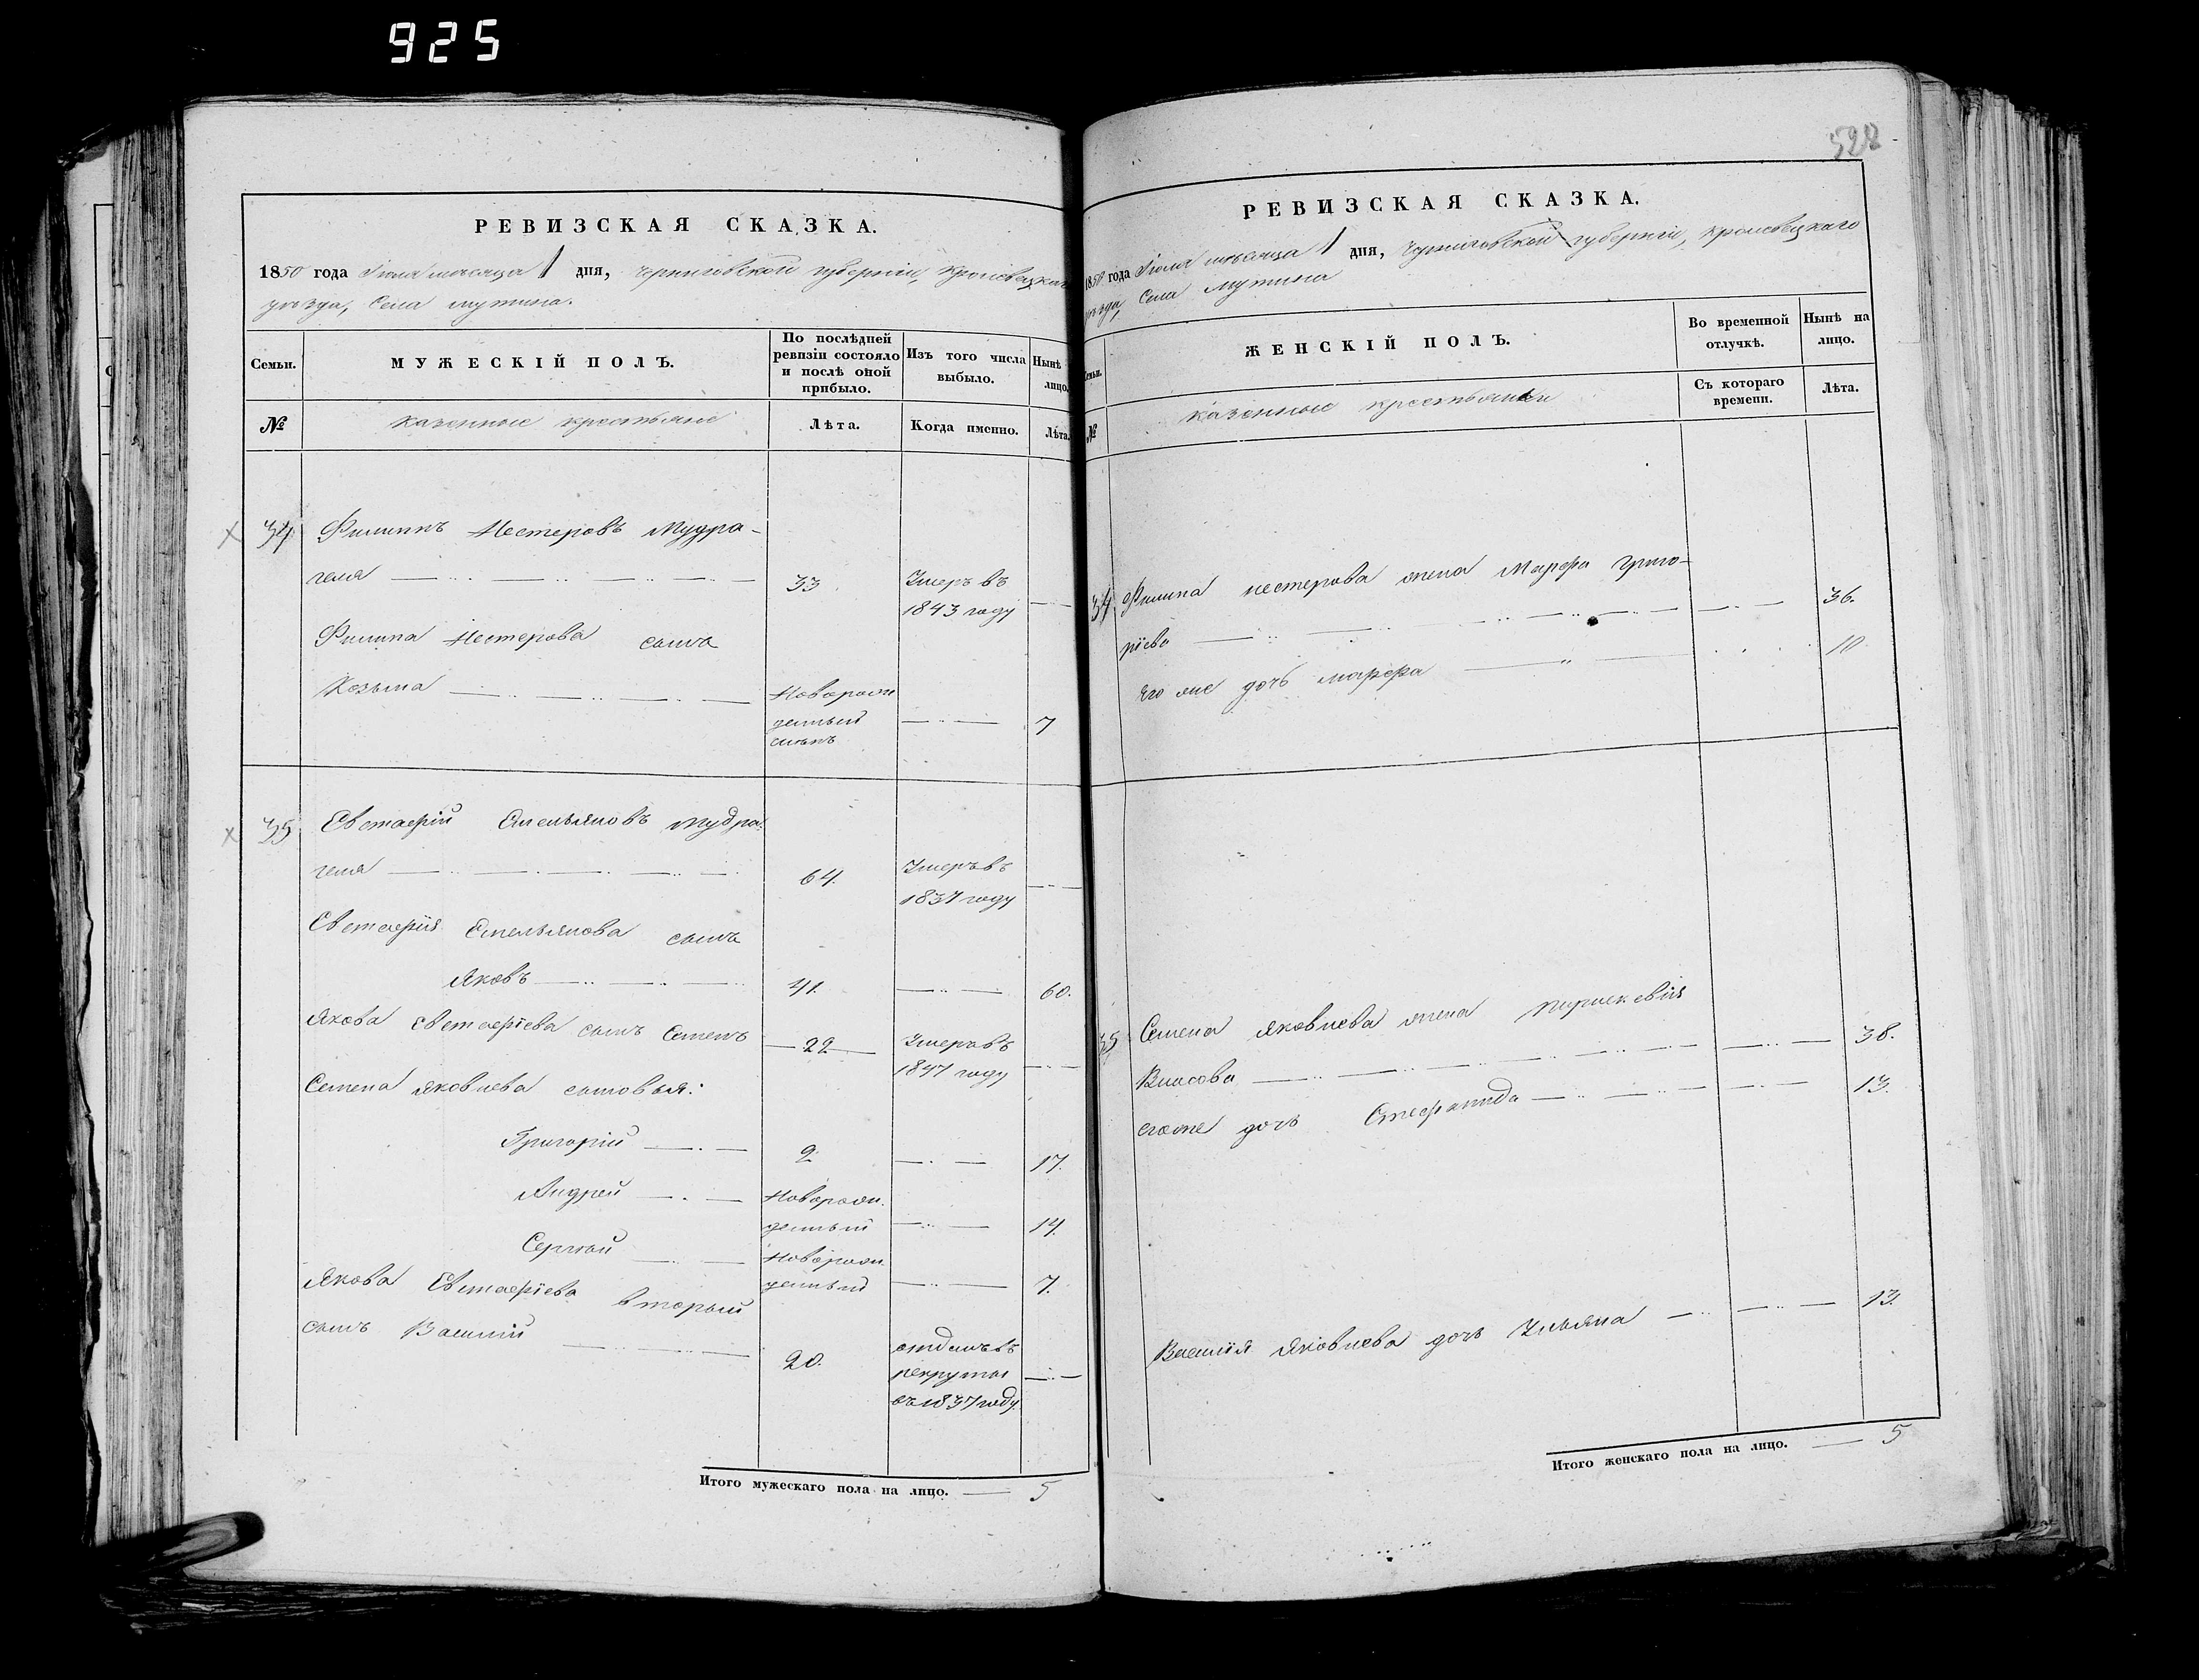 925
РЕВИЗСКАЯ СКАЗКА.
1850 года Іюля месяца 1 дня, Черниговской губерніи, Кролевецкаго
уезда, Села Мутина.
Семьи.
МУЖЕСКІЙ ПОЛЪ.
По послѣдней ревизіи состояло и послѣ оной прибыло.
Изъ того числа выбыло.
Нынѣ лицо.
№
казенные крестьяне
Лѣта.
Когда именно.
Лѣта.
34 Филиппъ Нестеровъ Мудра-
геля 33 Умеръ въ
1843 году
Филипа Нестерова сынъ
Козьма Новорож
денный 7
сынъ
35 Евстафій Емельяновъ Мудра-
геля 64. Умеръ въ
1837 году
Евстафія Емельянова сынъ
Яковъ 41. 60.
Якова Евстафіева сынъ Семенъ 22 Умеръ въ
1847 году
Семена Яковлева сыновья:
Григорій 2 17.
Андрей Новорож.
денный 14.
Сергѣй Новорож.
денный 7.
Якова Евстафіева вторый
сынъ Василій 20. отданъ въ
рекруты
въ 1837 году.
Итого мужескаго пола на лицо. 5
528
РЕВИЗСКАЯ СКАЗКА.
1850 года Іюля мѣсяца 1 дня, Черниговской губерніи, Кролевецкаго
уѣзда, Села Мутина
Семьи.
ЖЕНСКІЙ ПОЛЪ.
Во временной отлучкѣ.
Нынѣ на лицо.
№
казенные крестьянки
Съ котораго времени.
Лѣта.
34 Филипа Нестерова жена Марфа Григо-
ріева 36.
Его же дочь Марфа 10
35 Семена Яковлева жена Параскевія
Власова 38.
его же дочь Стефанида 13.
Василія Яковлева дочь Ульяна 13.
Итого женскаго пола на лицо. 5